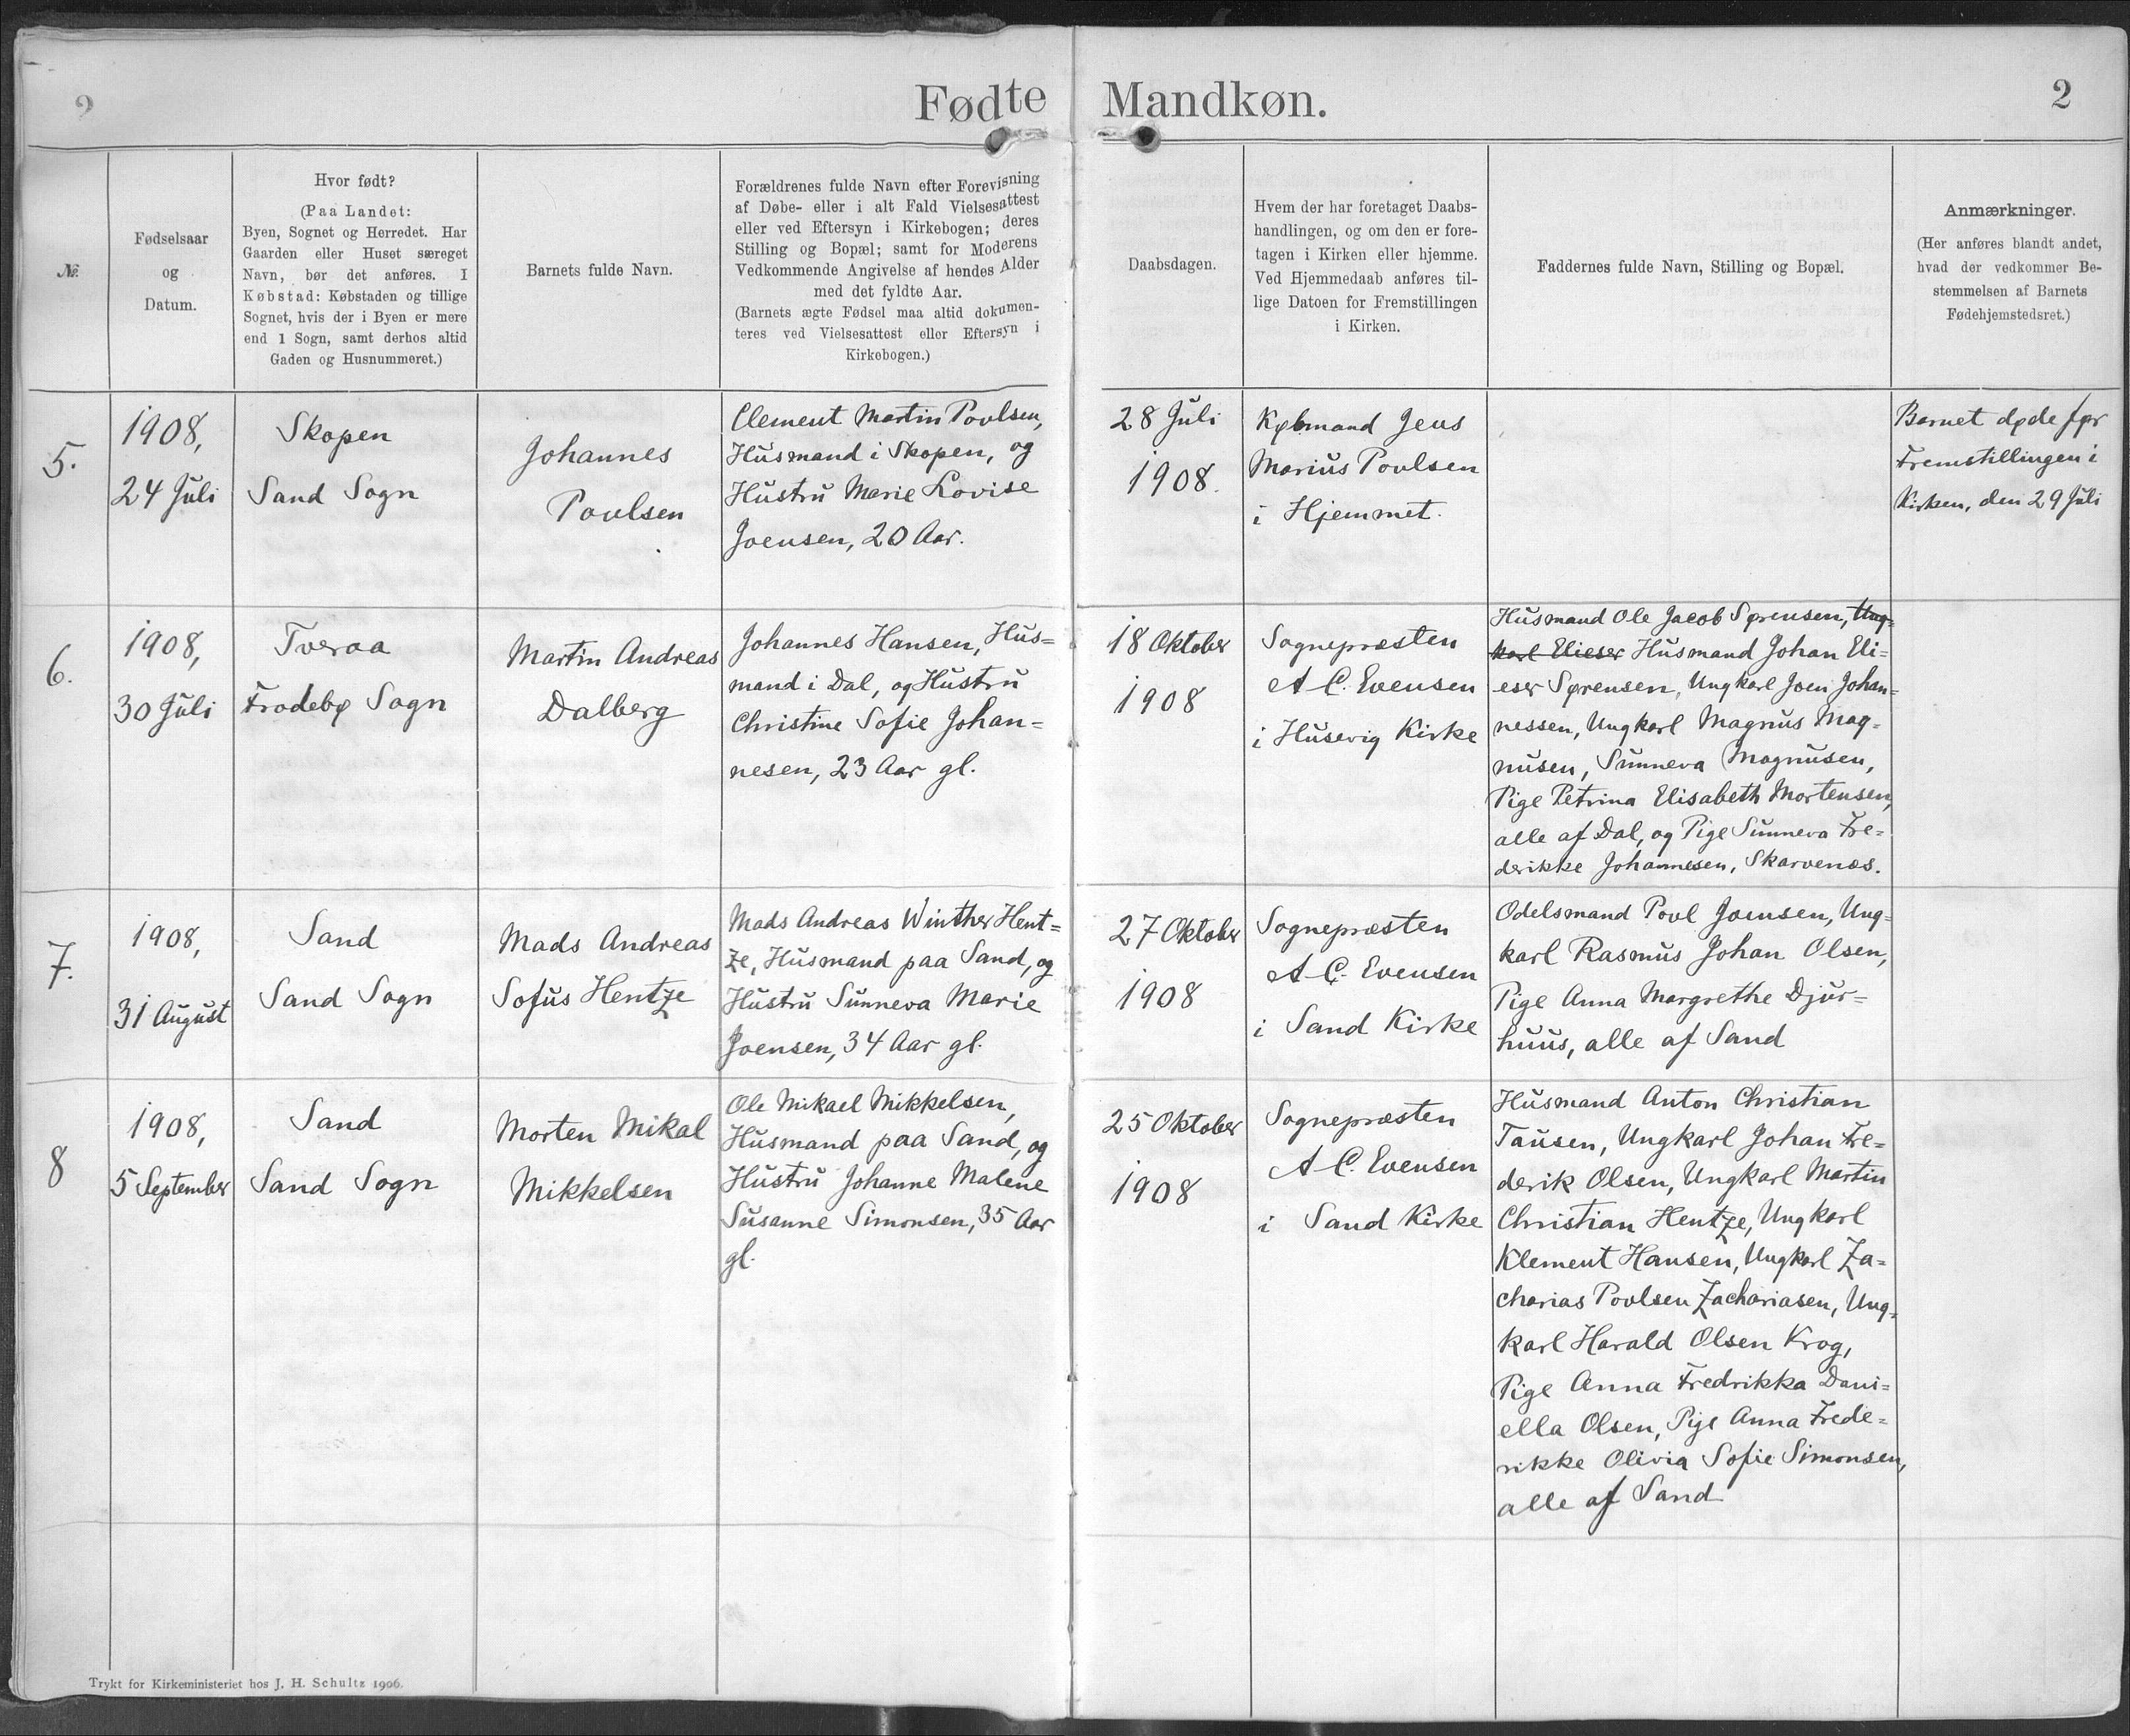 2
Fødte Mandkøn.
2
№.
Fødselsaar
og
Datum.
Hvor født?
(Paa Landet:
Byen, Sognet og Herredet. Har
Gaarden eller Huset særeget
Navn, bør det anføres. I
Købstad: Købstaden og tillige
Sognet, hvis der i Byen er mere
end 1 Sogn, samt derhos altid
Gaden og Husnummeret.)
Barnets fulde Navn.
Forældrenes fulde Navn efter Forevisning
af Døbe- eller i alt Fald Vielsesattest
eller ved Eftersyn i Kirkebogen; deres
Stilling og Bopæl; samt for Moderens
Vedkommende Angivelse af hendes Alder
med det fyldte Aar.
(Barnets ægte Fødsel maa altid dokumen-
teres ved Vielsesattest eller Eftersyn i
Kirkebogen.)
Daabsdagen.
Hvem der har foretaget Daabs-
handlingen, og om den er fore-
tagen i Kirken eller hjemme.
Ved Hjemmedaab anføres til-
lige Datoen for Fremstillingen
i Kirken.
Faddernes fulde Navn, Stilling og Bopæl.
Anmærkninger.
(Her anføres blandt andet,
hvad der vedkommer Be-
stemmelsen af Barnets
Fødehjemstedsret.)
5.
1908,
24 Juli
Skopen
Sand Sogn
Johannes
Poulsen
Clement Martin Poulsen,
Husmand i Skopen, og
Hustru Marie Lovise
Joensen, 20 Aar.
28 Juli
1908.
Købmand Jens
Marius Poulsen
i Hjemmet.
Barnet døde før
Fremstillingen i
Kirken, den 29 Juli
6.
1908,
30 Juli
Tveraa
Frodebø Sogn
Martin Andreas
Dalberg
Johannes Hansen, Hus=
mand i Dal, og Hustru
Christine Sofie Johan=
nesen, 23 Aar gl.
18 Oktober
1908
Sognepræsten
A C. Evensen
i Husevig Kirke
Husmand Ole Jacob Sørensen, Ung=
karl Elieser Husmand Johan Eli=
eser Sørensen, Ungkarl Joen Johan=
nessen, Ungkarl Magnus Mag=
nusen, Sunneva Magnusen,
Pige Petrina Elisabeth Mortensen,
alle af Dal, og Pige Sunneva Fre=
derikke Johannesen, Skarvenæs.
7.
1908,
31 August
Sand
Sand Sogn
Mads Andreas
Sofus Hentze
Mads Andreas Winther Hent=
ze, Husmand paa Sand, og
Hustru Sunneva Marie
Joensen, 34 Aar gl.
27 Oktober
1908
Sognepræsten
A C. Evensen
i Sand Kirke
Odelsmand Poul Joensen, Ung=
karl Rasmus Johan Olsen,
Pige Anna Margrethe Djur=
huus, alle af Sand
8
1908,
5 September
Sand
Sand Sogn
Morten Mikal
Mikkelsen
Ole Mikael Mikkelsen,
Husmand paa Sand, og
Hustru Johanne Malene
Susanne Simonsen, 35 Aar
gl.
25 Oktober
1908
Sognepræsten
A C. Evensen
i Sand Kirke
Husmand Anton Christian
Tausen, Ungkarl Johan Fre=
derik Olsen, Ungkarl Martin
Christian Hentze, Ungkarl
Klement Hansen, Ungkarl Za=
charias Poulsen Zachariasen, Ung=
karl Harald Olsen Krog,
Pige Anna Fredrikka Dani=
ella Olsen, Pige Anna Frede=
rikke Olivia Sofie Simonsen,
alle af Sand
Trykt for Kirkeministeriet hos J. H. Schultz 1906.